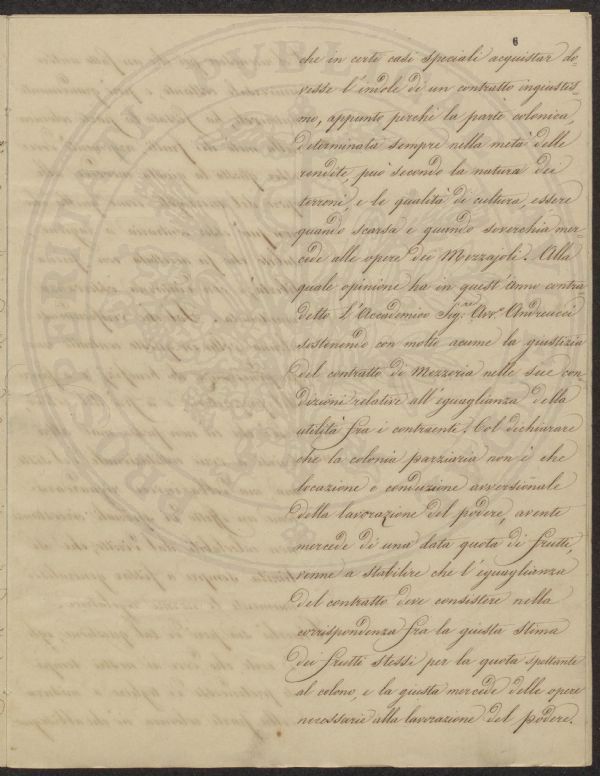 6
che in certi casi speciali acquistar do-
vesse l'indole di un contratto ingiustis-
mo, appunto perchè la parte colonica,
determinata sempre nella metà delle
rendite, può secondo la natura dei
terreni, e le qualità di cultura, essere
quando scarsa e quando soverchia mer-
cede alle opere dei Mezzajoli. Alla
quale opinione ha in quest'Anno contra
detto L'Accademico Sig.re Avv.o Andreucci
sostenendo con molto acume la giustizia
del contratto di Mezzeria nelle sue con-
dizioni relative all'eguaglianza della
utilità fra i contraenti. Col dichiarare
che la colonia parziaria non è che
locazione e conduzione avversionale
della lavorazione del podere, avente
mercede di una data quota di frutti,
venne a stabilire che l'eguaglianza
del contratto deve consistere nella
corrispondenza fra la giusta stima
dei frutti stessi per la quota spettante
al colono, e la giusta mercede delle opere
necessarie alla lavorazione del podere.
PROSPERITATI PVBLICAE